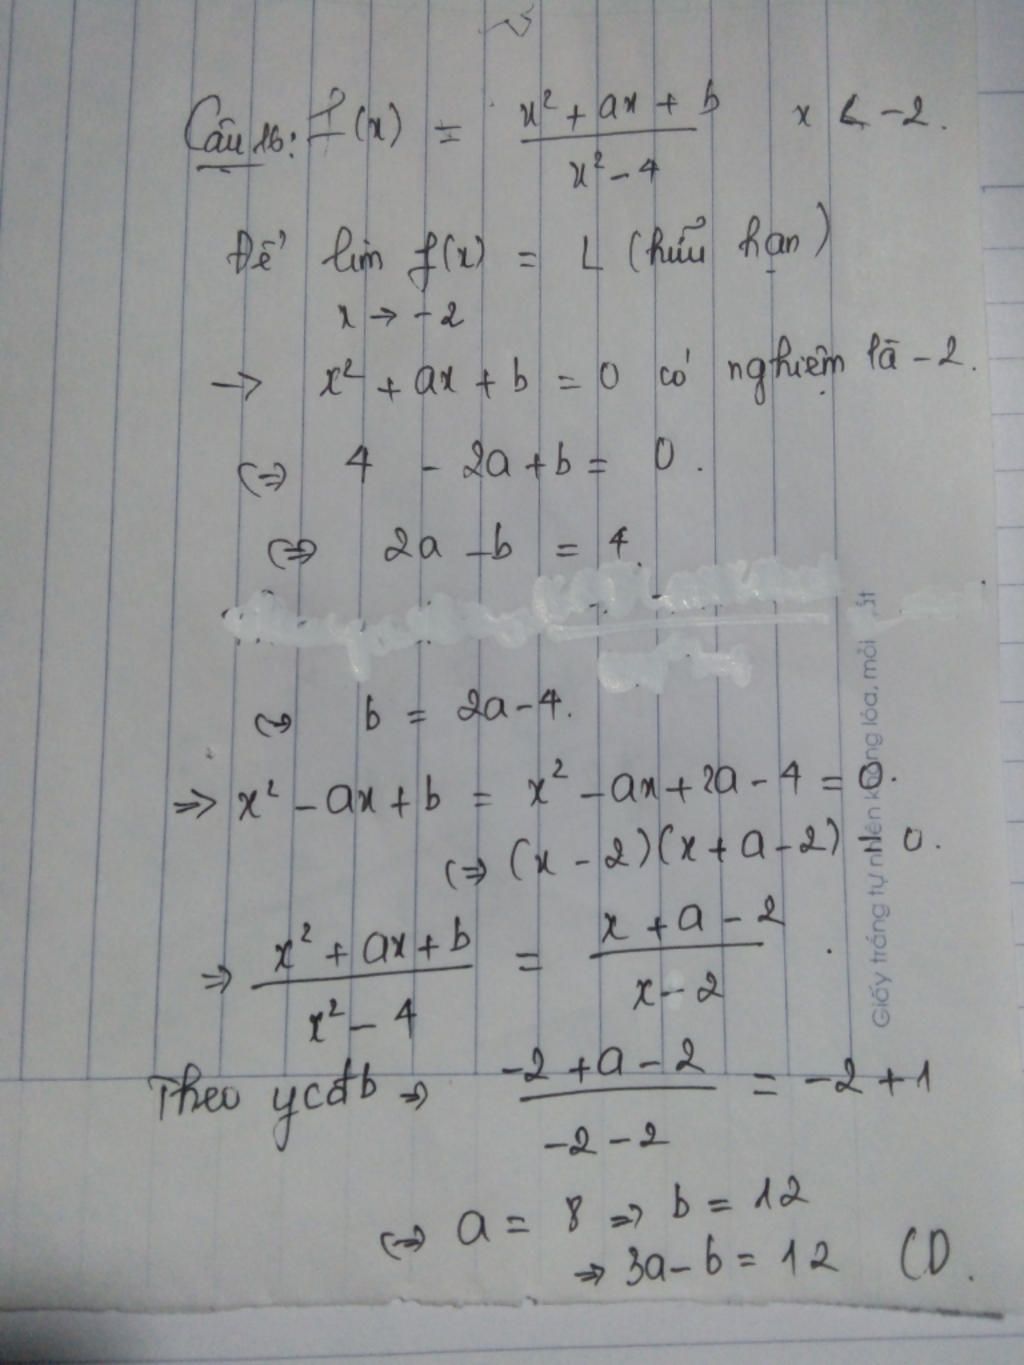 Câu 16: f(x) = (x² + ax + b)/(x² - 4) x < -2.
Để lim f(x) = L (hữu hạn)
x → -2
→ x² + ax + b = 0 có nghiệm là -2.
⇔ 4 - 2a + b = 0.
⇔ 2a - b = 4.
⇔ b = 2a - 4.
⇒ x² - ax + b = x² - ax + 2a - 4 = 0.
⇔ (x - 2)(x + a - 2) = 0.
⇒ (x² + ax + b)/(x² - 4) = (x + a - 2)/(x - 2).
Theo ycđb ⇒ (-2 + a - 2)/(-2 - 2) = -2 + 1
⇔ a = 8 ⇒ b = 12
⇒ 3a - b = 12 (D.
Giấy trắng tự nhiên không lóa, mỏi